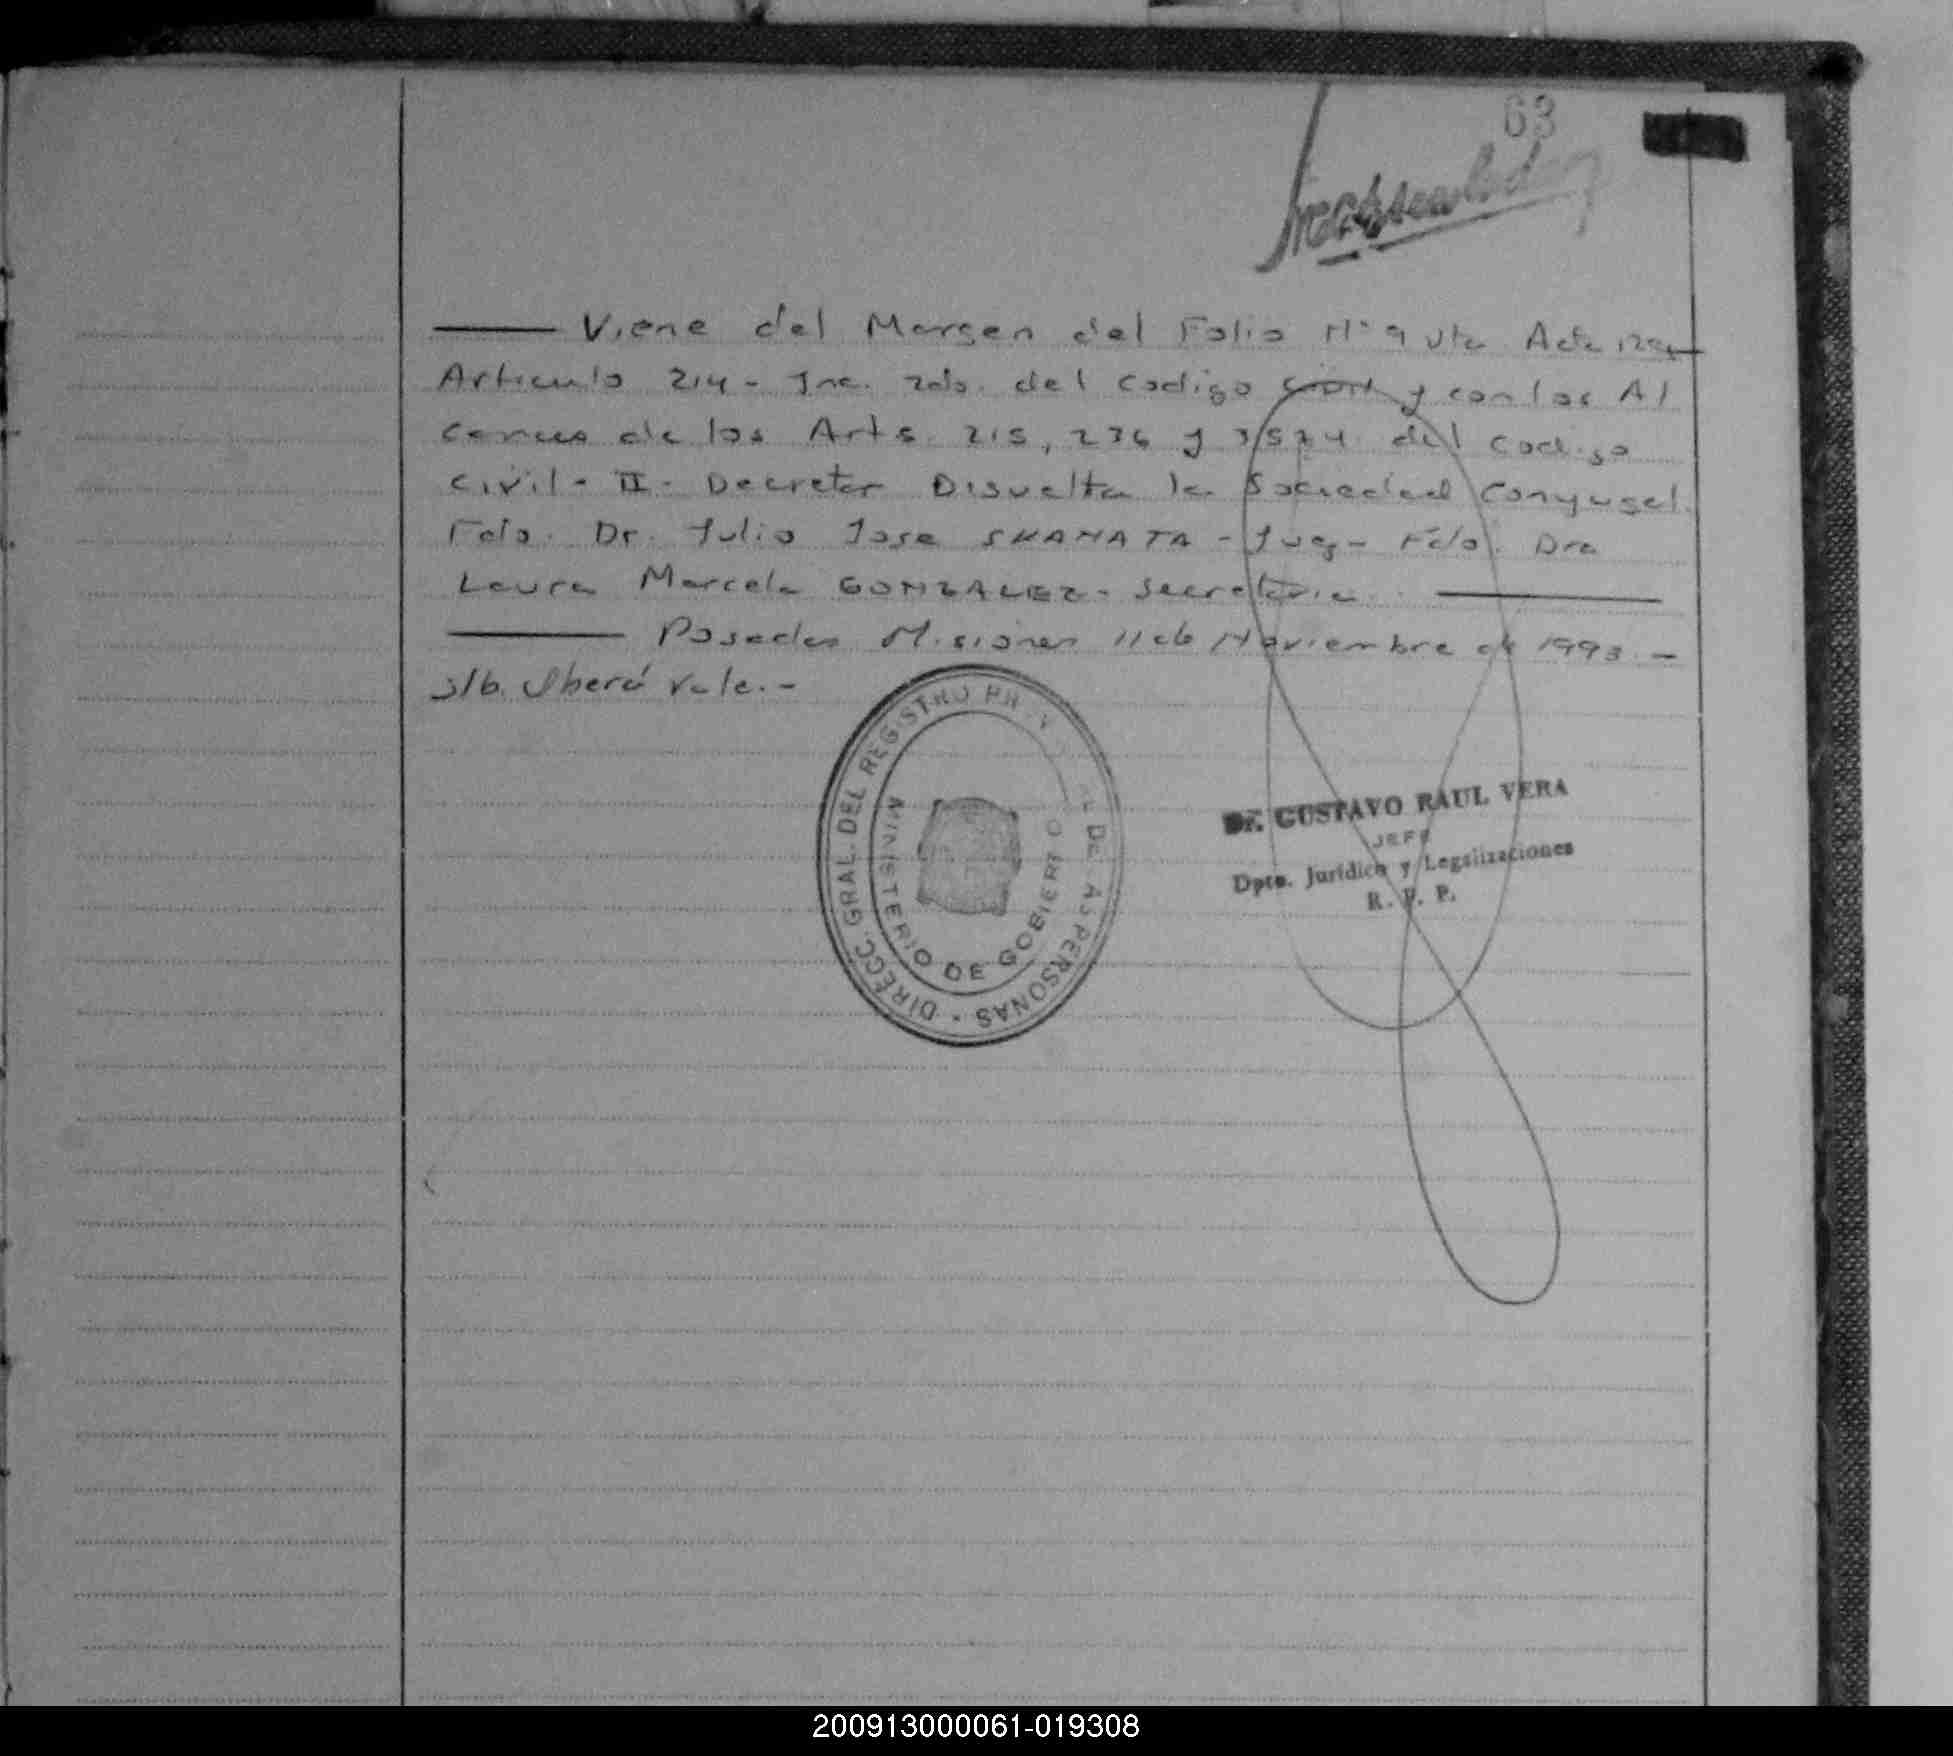 63
Viene del Margen del Folio Nº 9 vta Acta
Articulo 214 - Inc. 2do. del Codigo Civil y con los Al
cances de los Arts. 215, 236 y 3574 del Codigo
Civil - II - Decretar Disuelta la Sociedad Conyugal.
Fdo. Dr. Julio Jose SKANATA - Juez - Fdo. Dra
Laura Marcela GONZALEZ - Secretaria.
Posadas Misiones 11 de Noviembre de 1993. -
s/b. Oberá Vale. -
DIRECC. GRAL. DEL REGISTRO DE PERSONAS
MINISTERIO DE GOBIERNO
Dr. GUSTAVO RAUL VERA
JEFE
Dpto. Jurídico y Legalizaciones
R. P. P.
200913000061-019308